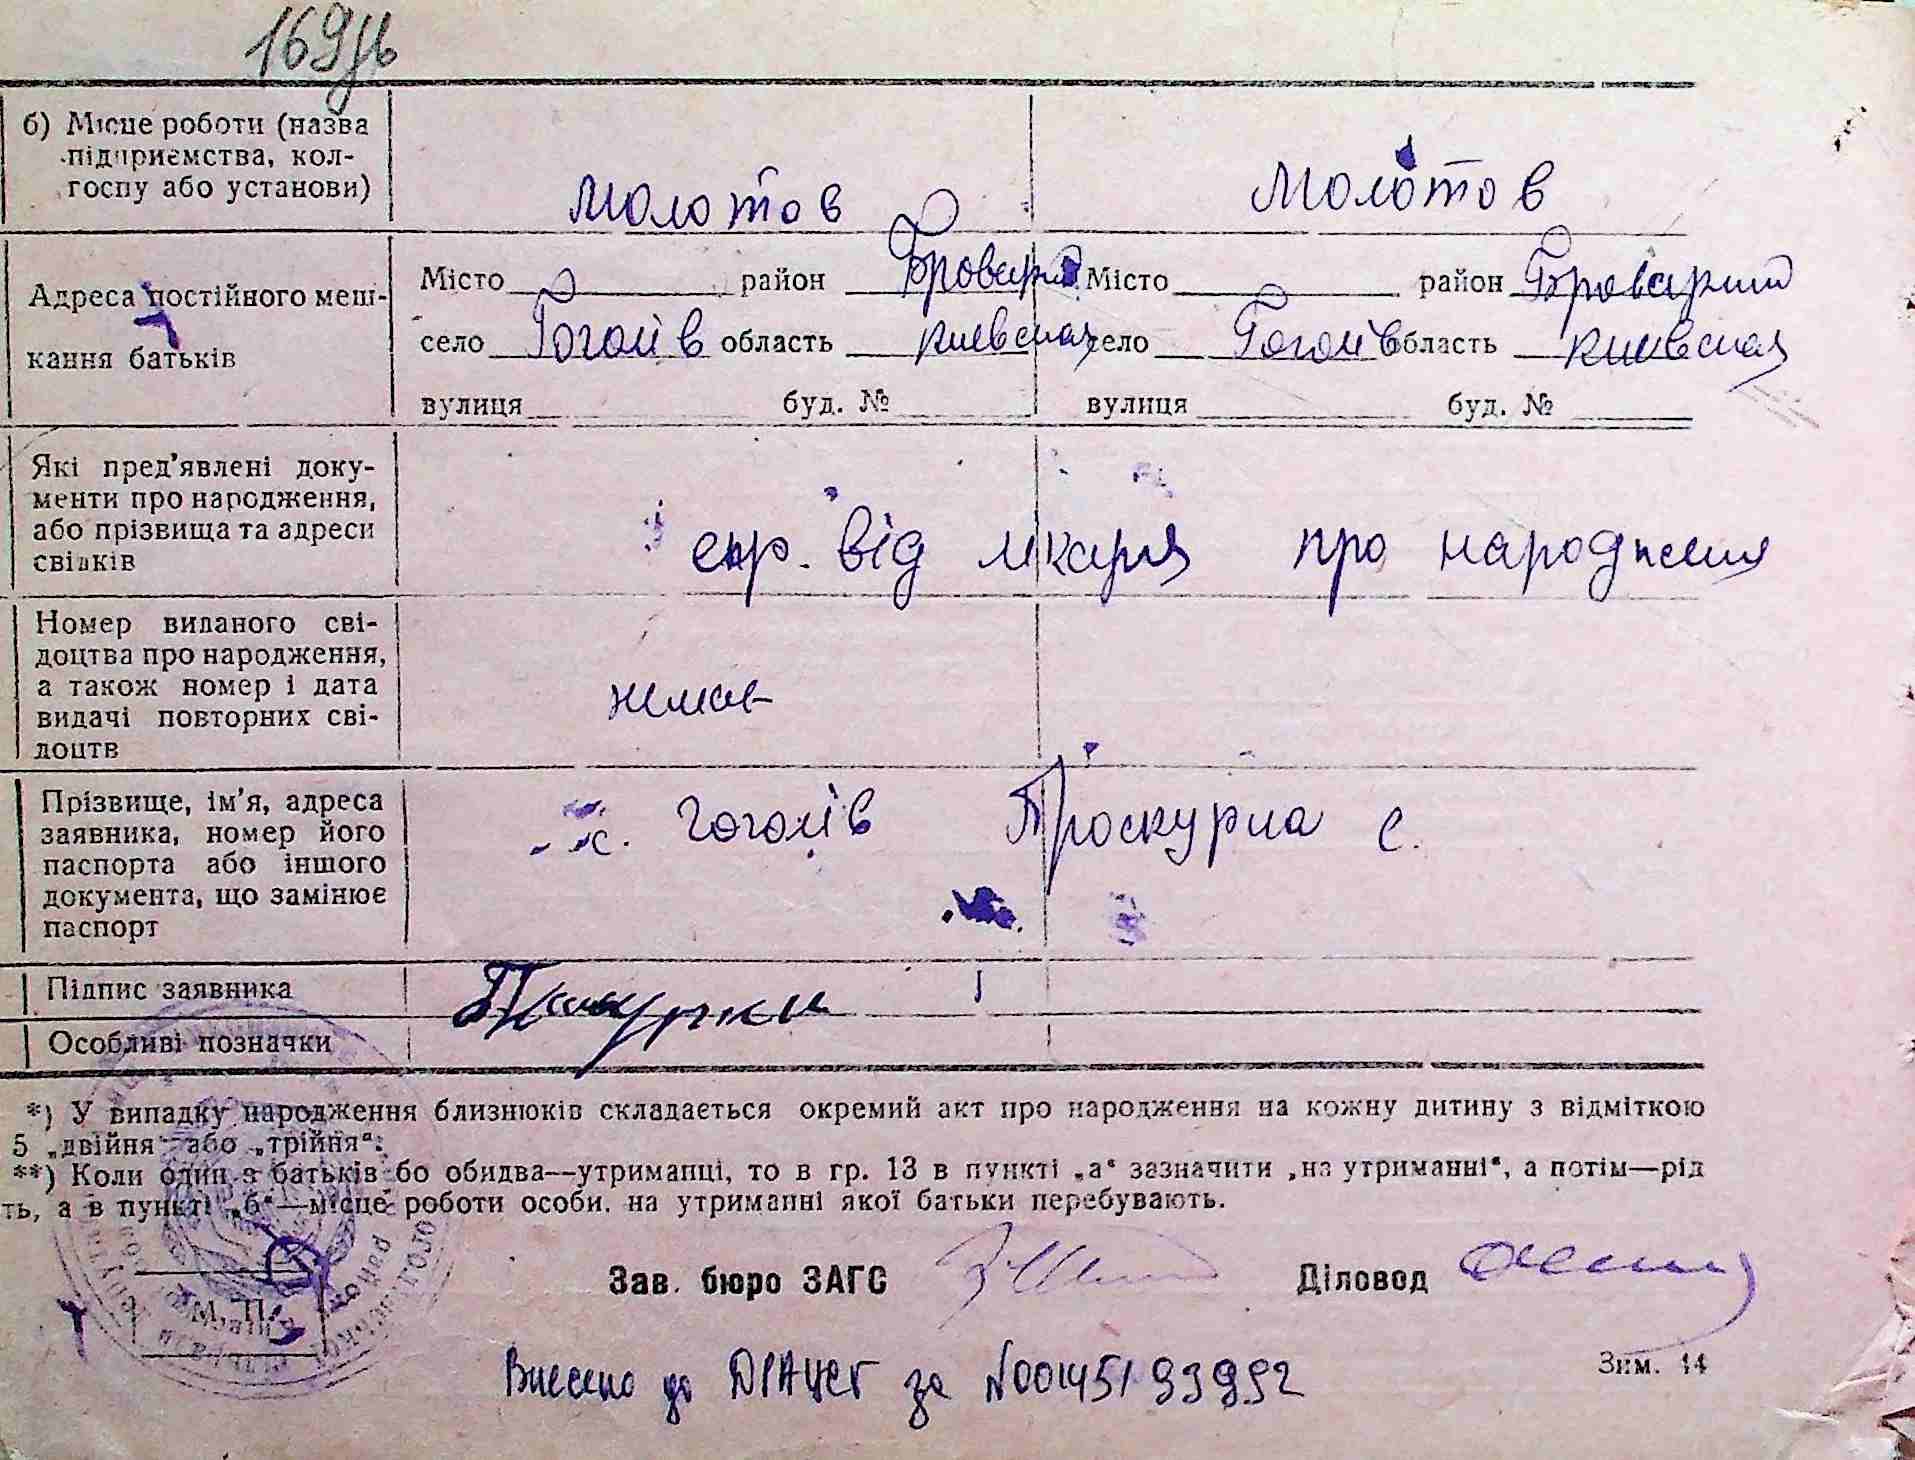 169
б) Місце роботи (назва підприємства, колгоспу або установи)
Молотов
Молотов
Адреса постійного мешкання батьків
Місто район Бровари
село Гоголів область Киевская
вулиця буд. №
Місто район Броварский
село Гоголів область Киевская
вулиця буд. №
Які пред'явлені документи про народження, або прізвища та адреси свідків
від лікаря про народження
Номер виданого свідоцтва про народження, а також номер і дата видачі повторних свідоцтв
Прізвище, ім'я, адреса заявника, номер його паспорта або іншого документа, що замінює паспорт
с. Гоголів Проскурна С.
Підпис заявника
Особливі позначки
*) У випадку народження близнюків складається окремий акт про народження на кожну дитину з відміткою
5 „двійня“ або „трійня“.
**) Коли один з батьків бо обидва—утриманці, то в гр. 13 в пункті „а“ зазначити „на утриманні“, а потім—рід
ть, а в пункті „б“—місце роботи особи, на утриманні якої батьки перебувають.
Зав. бюро ЗАГС
Діловод
М. П.
Внесено до ДРАЦСГ за №00145193992
Зим. 14